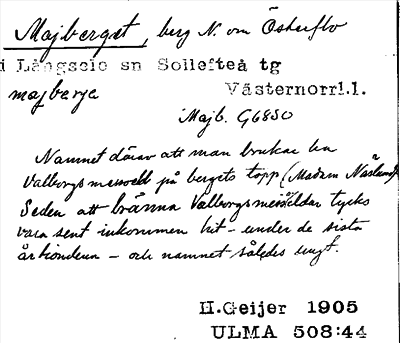 Majberget, berg N. om Österflo
i Långsele sn Sollefteå tg
majberja Västernorrl.l.
Majb. G6850
Namnet därav att man brukar ha
Valborgsmesseld på bergets topp (Madam Näslund).
Seden att bränna Valborgsmesseldar tycks
vara sent inkommen hit – under de sista
årtiondena – och namnet således ungt.
H.Geijer 1905
ULMA 508:44